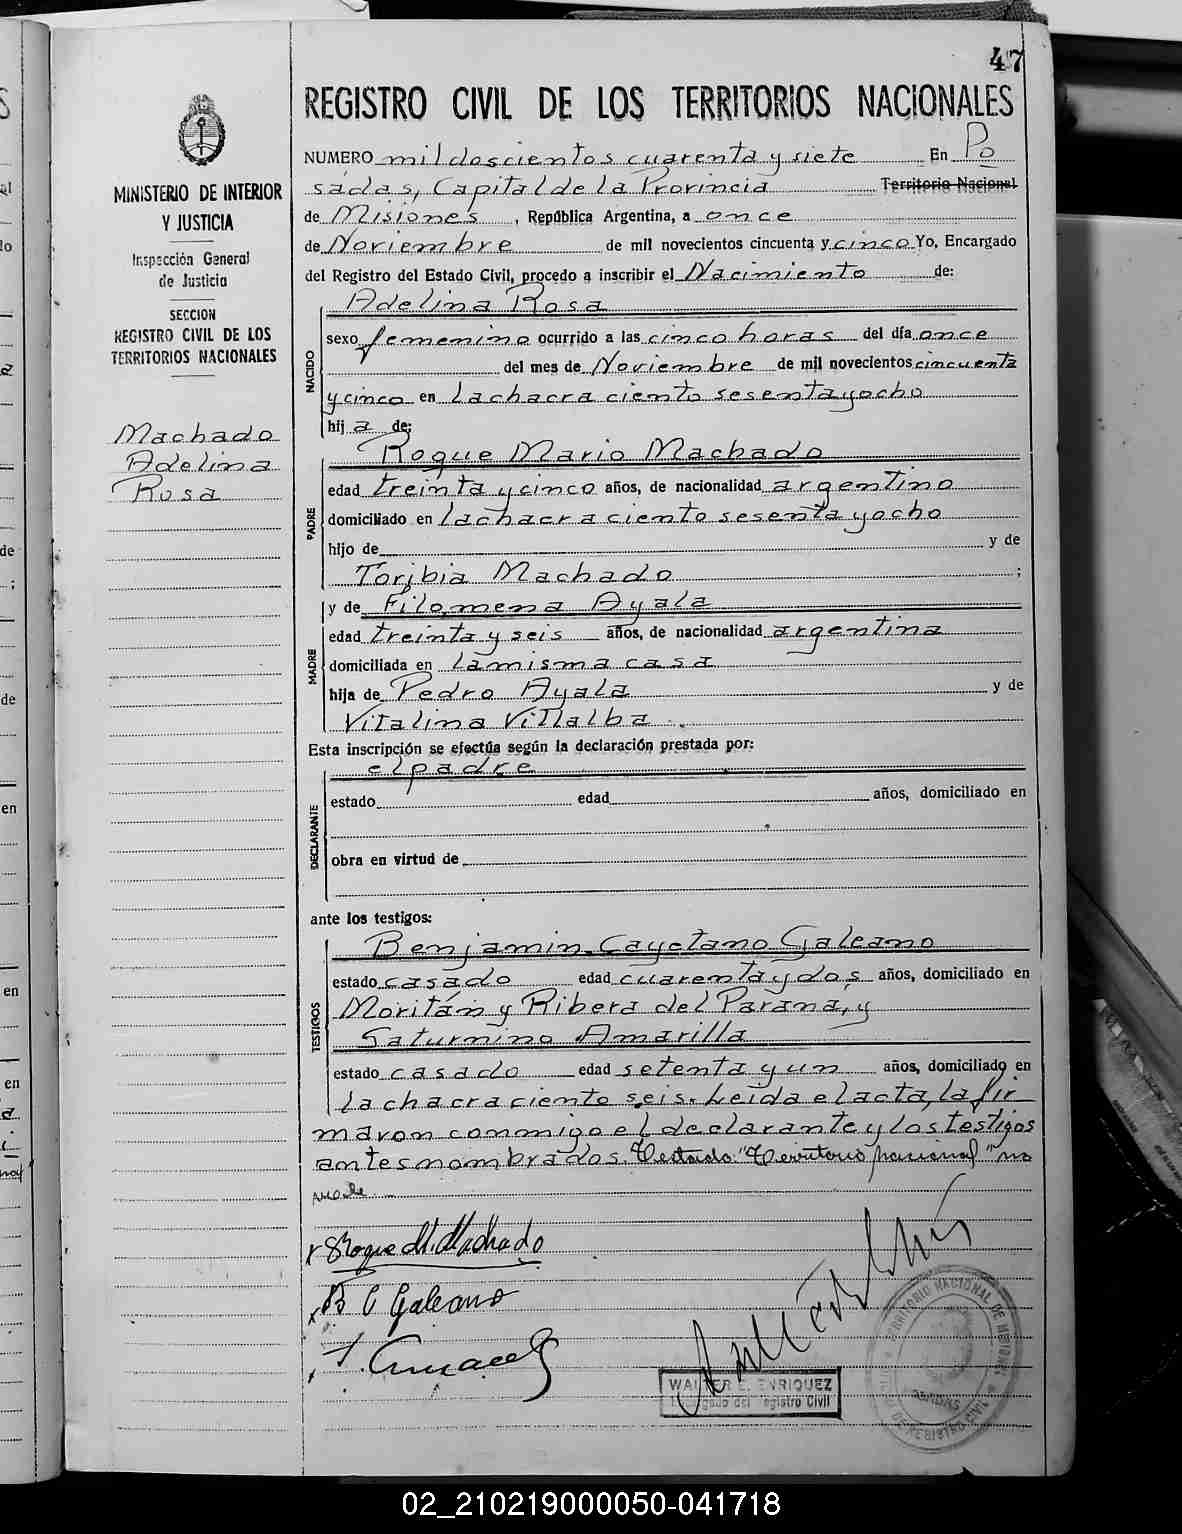 47
REGISTRO CIVIL DE LOS TERRITORIOS NACIONALES
MINISTERIO DE INTERIOR
Y JUSTICIA
Inspección General
de Justicia
SECCION
REGISTRO CIVIL DE LOS
TERRITORIOS NACIONALES
Machado
Adelina
Rosa
NUMERO mil doscientos cuarenta y siete En Po
sadas, Capital de la Provincia Territorio Nacional
de Misiones, República Argentina, a once
de Noviembre de mil novecientos cincuenta y cinco Yo, Encargado
del Registro del Estado Civil, procedo a inscribir el Nacimiento de:
NACIDO
Adelina Rosa
sexo femenino ocurrido a las cinco horas del día once
del mes de Noviembre de mil novecientos cincuenta
y cinco en la chacra ciento sesenta y ocho
hij a de:
PADRE
Roque Mario Machado
edad treinta y cinco años, de nacionalidad argentino
domiciliado en la chacra ciento sesenta y ocho
hijo de y de
Toribia Machado ;
MADRE
y de Filomena Ayala
edad treinta y seis años, de nacionalidad argentina
domiciliada en la misma casa
hija de Pedro Ayala y de
Vitalina Villalba
Esta inscripción se efectúa según la declaración prestada por:
DECLARANTE
el padre
estado edad años, domiciliado en
obra en virtud de
ante los testigos:
TESTIGOS
Benjamin Cayetano Galeano
estado casado edad cuarenta y dos años, domiciliado en
Moritán y Ribera del Parana, y
Saturnino Amarilla
estado casado edad setenta y un años, domiciliado en
la chacra ciento seis. Leida el acta, la fir
maron conmigo el declarante y los testigos
antes nombrados. Testado: "Territorio nacional" no
vale
Roque M. Machado
B C Galeano
WALTER E. ENRIQUEZ
Encargado del Registro Civil
TERRITORIO NACIONAL DE MISIONES
POSADAS
DE REGISTRO CIVIL
02_210219000050-041718